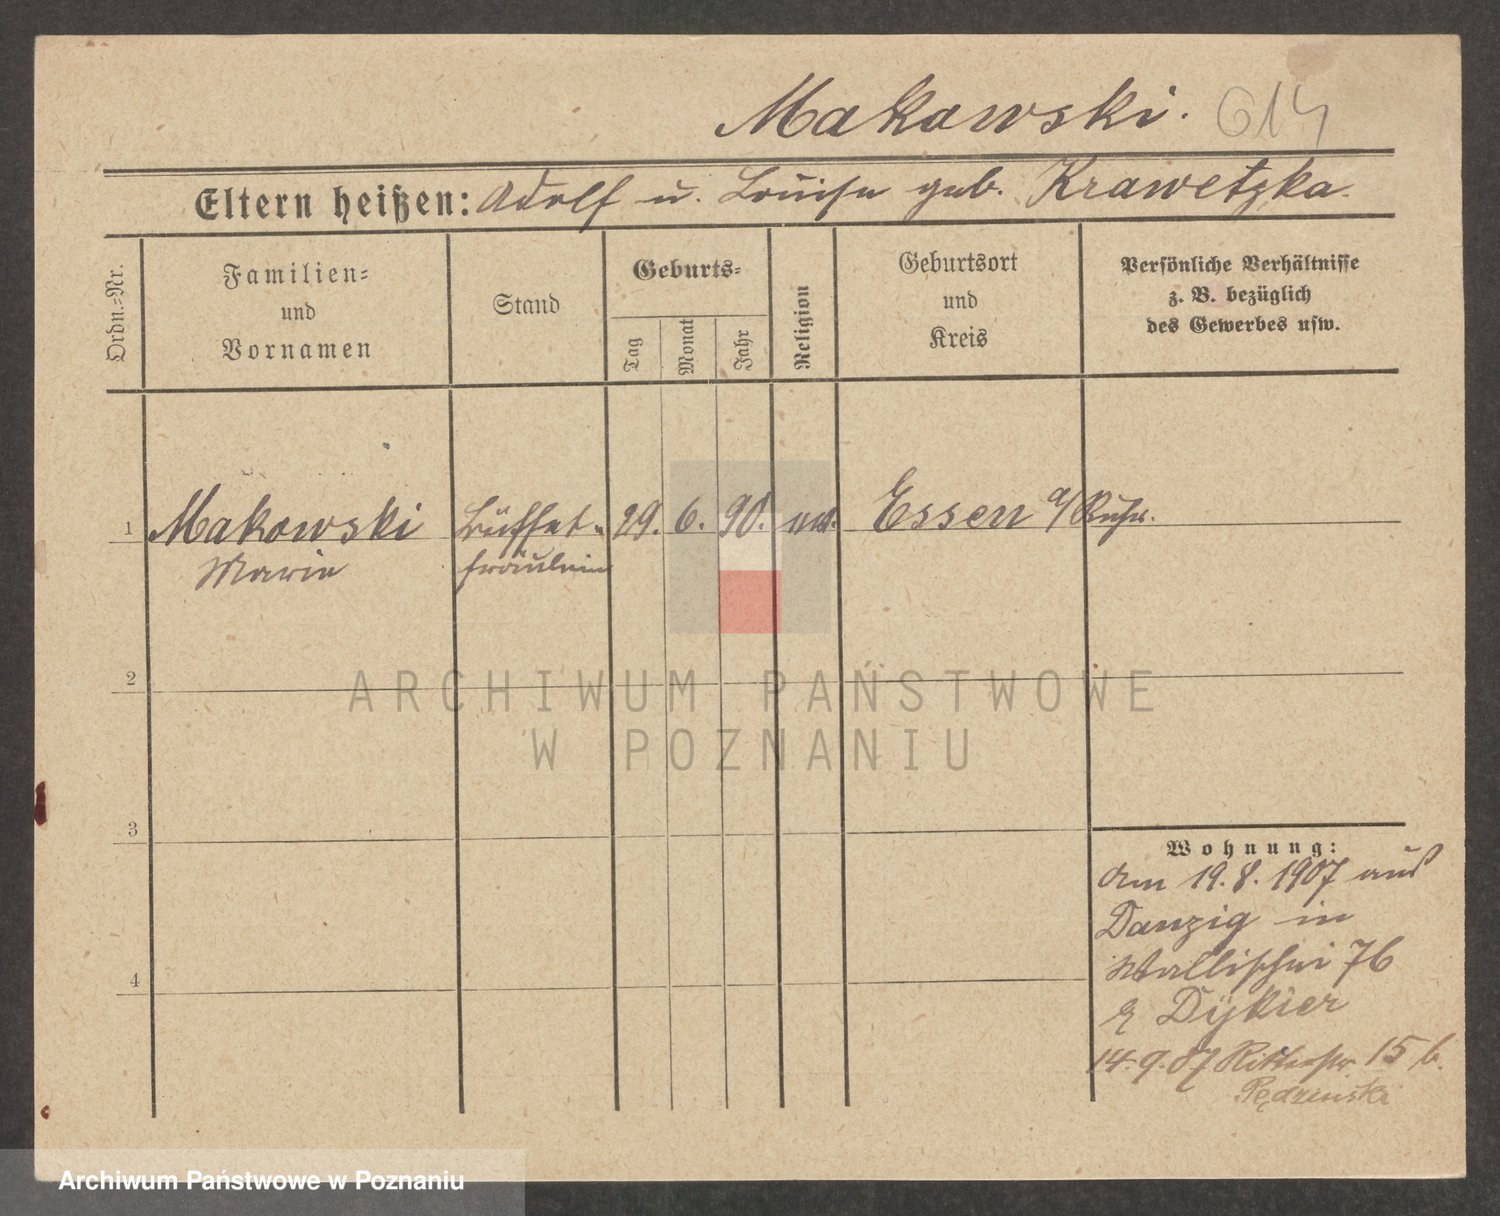 Makowski. 614
Eltern heißen: Adolf u. Louise geb. Krawetzka.
Ordn.=Nr.
Familien=
und
Vornamen
Stand
Geburts=
Tag
Monat
Jahr
Religion
Geburtsort
und
Kreis
Persönliche Verhältnisse
z. B. bezüglich
des Gewerbes usw.
1 Makowski Büffet- 29. 6. 90. Essen a/Ruhr.
Marie fräulein
2
ARCHIWUM PAŃSTWOWE
W POZNANIU
3
Wohnung:
Am 19. 8. 1907 aus
Danzig in
Wallischei 76
Dykier
4
14. 9. 07 Ritterstr. 15 b.
Pędzinski
Archiwum Państwowe w Poznaniu